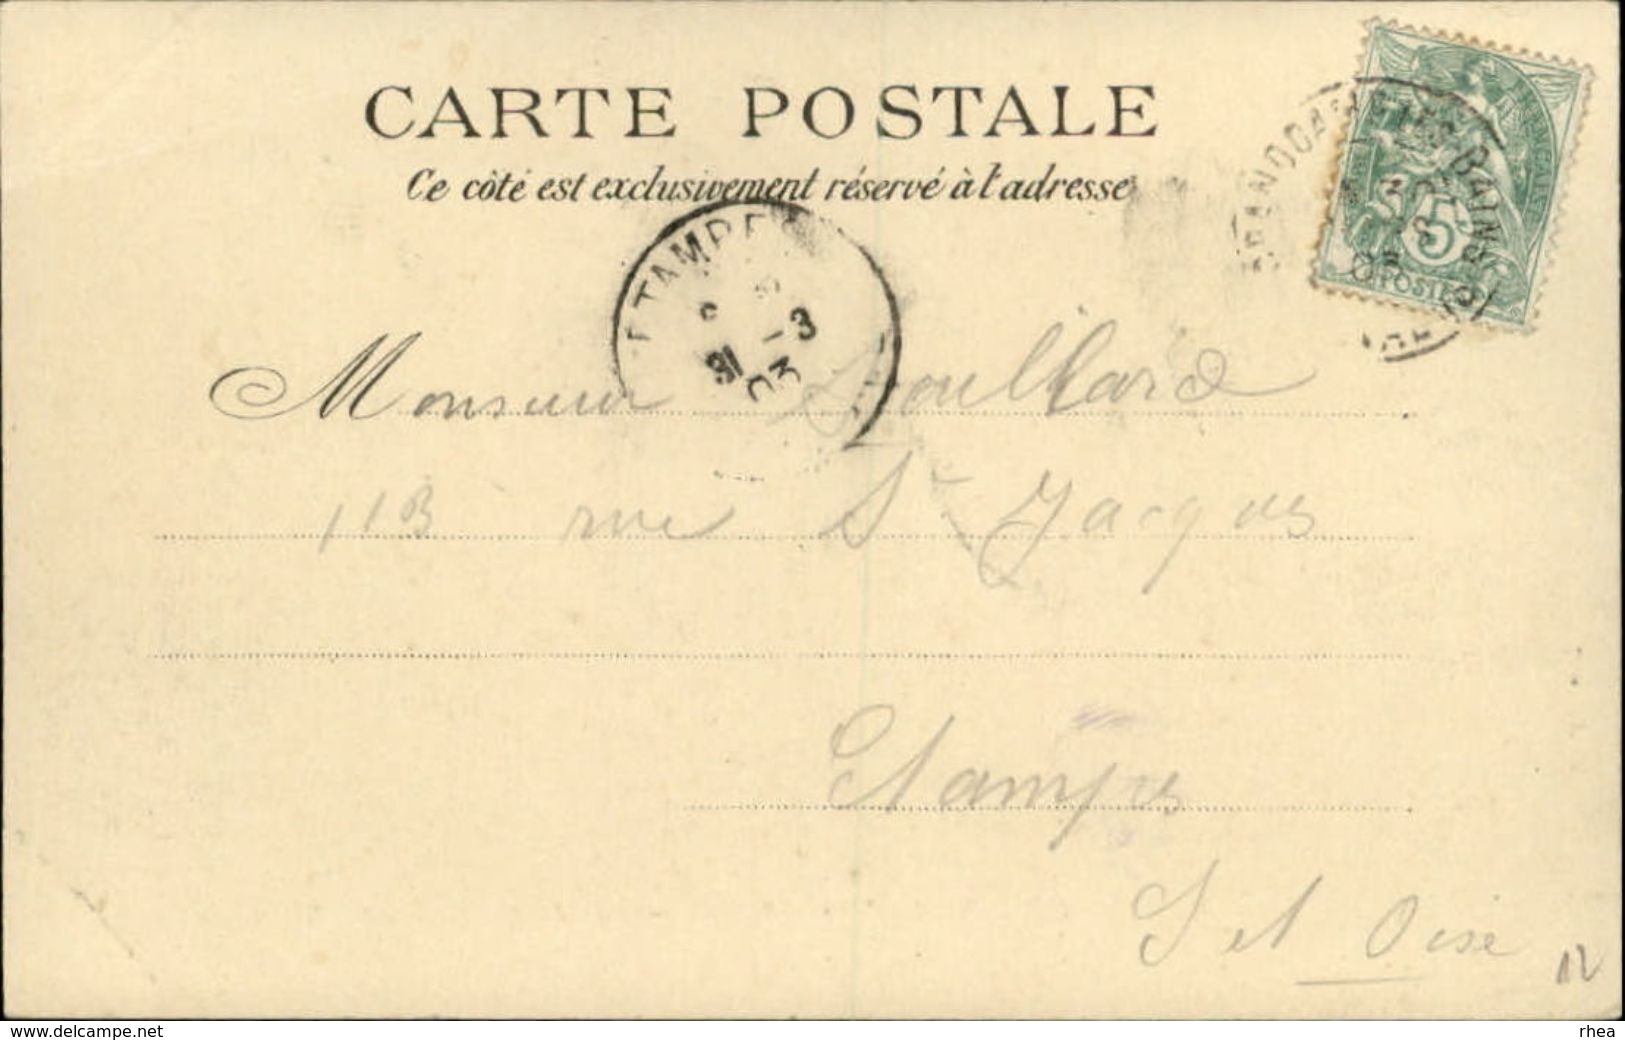 CARTE POSTALE
Ce côté est exclusivement réservé à l'adresse
5
POSTES
ETAMPES
31 -3
03
Monsieur
113 rue St Jacques
Etampes
S et Oise
12
www.delcampe.net
rhea